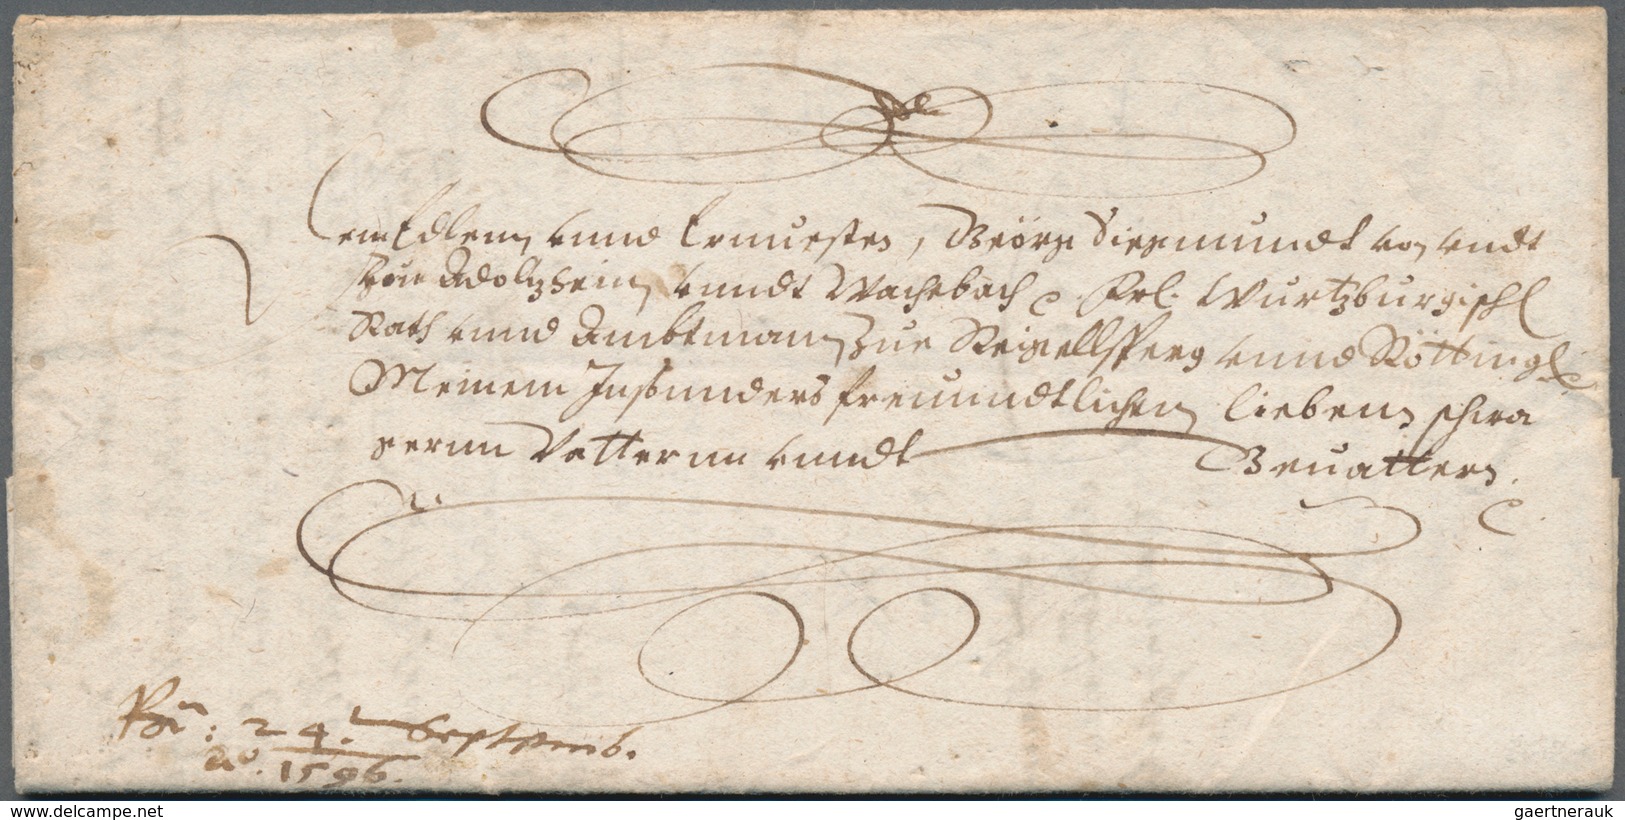 Dem Edlenn vnnd Ernuesten, Geörg Siegmundt vonn vndt
zue Adoltzheim vnndt Wachebach Frl. Wurtzburgischl
Rath vnnd Ambtman zue Reigellsperg vnnd Röttingl
Meinem Insonnders freuundtlichen lieben schwa
gernn Vetternn vnndt Geuattern.
24. Septemb.
Ao. 1596.
www.delcampe.net
gaertnerauk